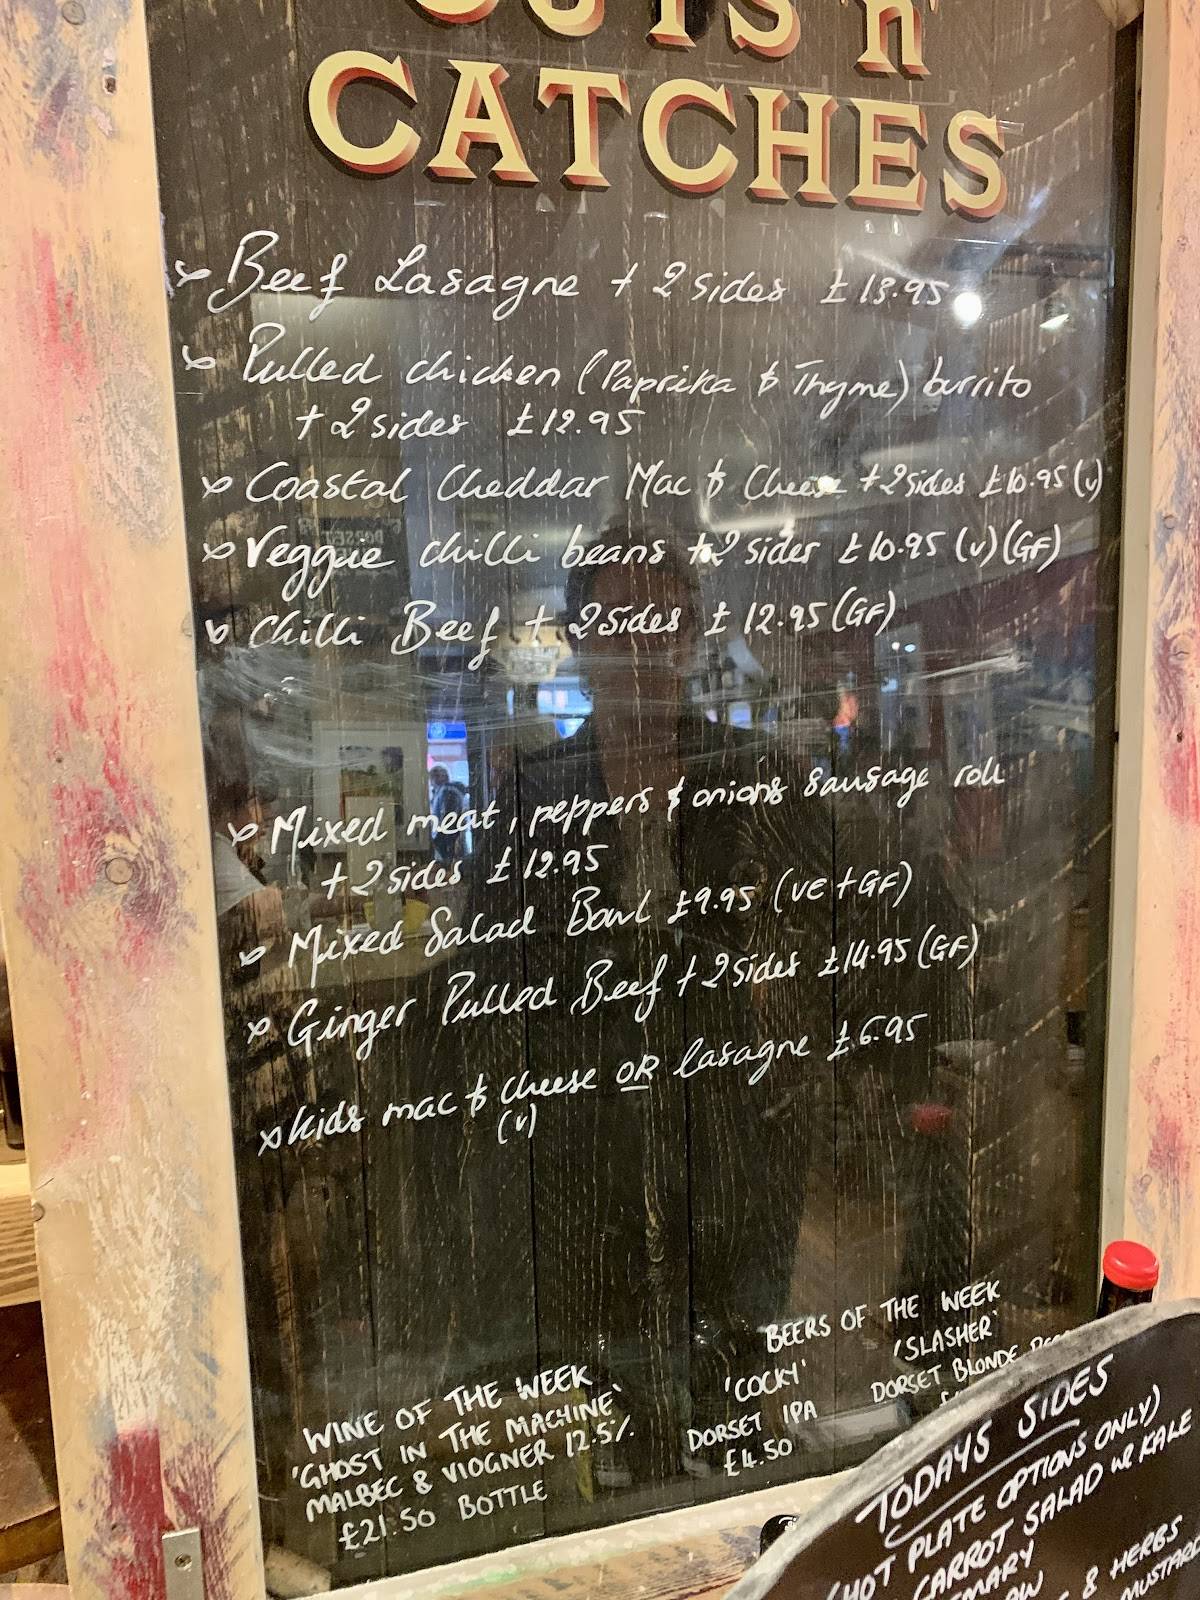 CUTS 'n'
CATCHES
Beef Lasagne + 2 sides £13.95
Pulled chicken (Paprika & Thyme) burrito
+ 2 sides £12.95
Coastal Cheddar Mac & Cheese + 2 sides £10.95 (v)
Veggie chilli beans + 2 sides £10.95 (v) (GF)
Chilli Beef + 2 sides £12.95 (GF)
Mixed meat, peppers & onions sausage roll
+ 2 sides £12.95
Mixed Salad Bowl £9.95 (VE + GF)
Ginger Pulled Beef + 2 sides £14.95 (GF)
Kids mac & cheese OR lasagne £6.95
(v)
WINE OF THE WEEK
'GHOST IN THE MACHINE'
MALBEC & VIOGNER 12.5%
£21.50 BOTTLE
BEERS OF THE WEEK
'COCKY'
DORSET IPA
£4.50
'SLASHER'
DORSET BLONDE
TODAYS SIDES
(HOT PLATE OPTIONS ONLY)
CARROT SALAD w KALE
& HERBS
MUSTARD